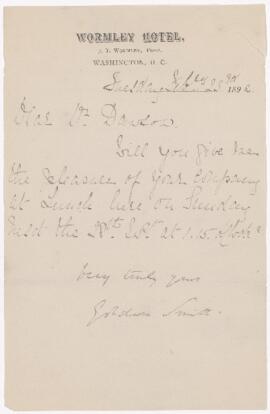 WORMLEY HOTEL,
J. T. WORMLEY, PROP.
WASHINGTON, D. C.
Tuesday Feby 23rd 1892
Dear Mr. Dawson
Will you give me
the pleasure of your company
at Lunch here on Sunday
next the 28th at 1.15. o'clock
Very truly yours
Goldwin Smith